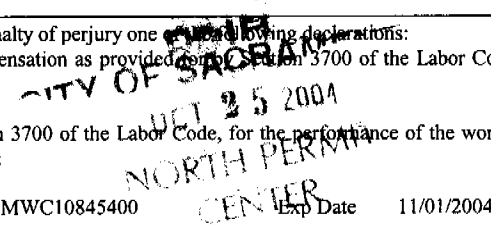 nalty of perjury one of the following declarations:
PAID
ensation as provided for by Section 3700 of the Labor Co
CITY OF SACRAM
OCT 25 2004
n 3700 of the Labor Code, for the performance of the wor
NORTH PERMIT
CENTER
MWC10845400 Exp Date 11/01/2004